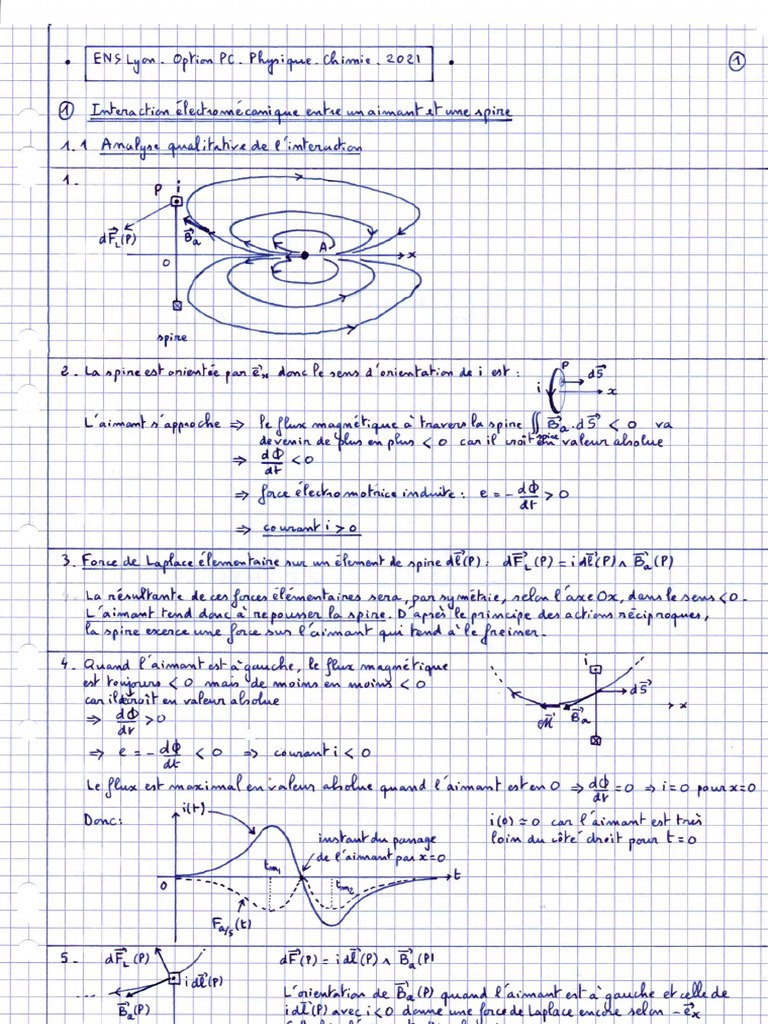 ENS Lyon. Option PC. Physique-Chimie. 2021
1
① Interaction électromécanique entre un aimant et une spire
1.1 Analyse qualitative de l'interaction
1.
P i
dF⃗_L(P) B⃗a A
O x
spire
2. La spire est orientée par e⃗x donc le sens d'orientation de i est :
P dS⃗
i x
L'aimant s'approche ⇒ le flux magnétique à travers la spire ∬spire B⃗a.dS⃗ < 0 va
devenir de plus en plus < 0 car il croît en valeur absolue
⇒ dΦ/dt < 0
⇒ force électromotrice induite : e = - dΦ/dt > 0
⇒ courant i > 0
3. Force de Laplace élementaire sur un élement de spire dl⃗(P) : dF⃗_L(P) = i dl⃗(P) ∧ B⃗a(P)
La résultante de ces forces élémentaires sera, par symétrie, selon l'axe Ox, dans le sens < 0.
L'aimant tend donc à repousser la spire. D'après le principe des actions réciproques,
la spire exerce une force sur l'aimant qui tend à le freiner.
4. Quand l'aimant est à gauche, le flux magnétique
est toujours < 0 mais de moins en moins < 0
car il décroît en valeur absolue
⇒ dΦ/dt > 0
⇒ e = - dΦ/dt < 0 ⇒ courant i < 0
i
dS⃗
x
M⃗ B⃗a
Le flux est maximal en valeur absolue quand l'aimant est en O ⇒ dΦ/dt = 0 ⇒ i = 0 pour x = 0
Donc :
i(t)
instant du passage
de l'aimant par x = 0
tm1 tm2 t
O
Fa/s(t)
i(0) ≈ 0 car l'aimant est très
loin du côté droit pour t = 0
5.
dF⃗_L(P)
i dl⃗(P)
B⃗a(P)
dF⃗(P) = i dl⃗(P) ∧ B⃗a(P)
L'orientation de B⃗a(P) quand l'aimant est à gauche et celle de
i dl⃗(P) avec i < 0 donne une force de Laplace encore selon - e⃗x